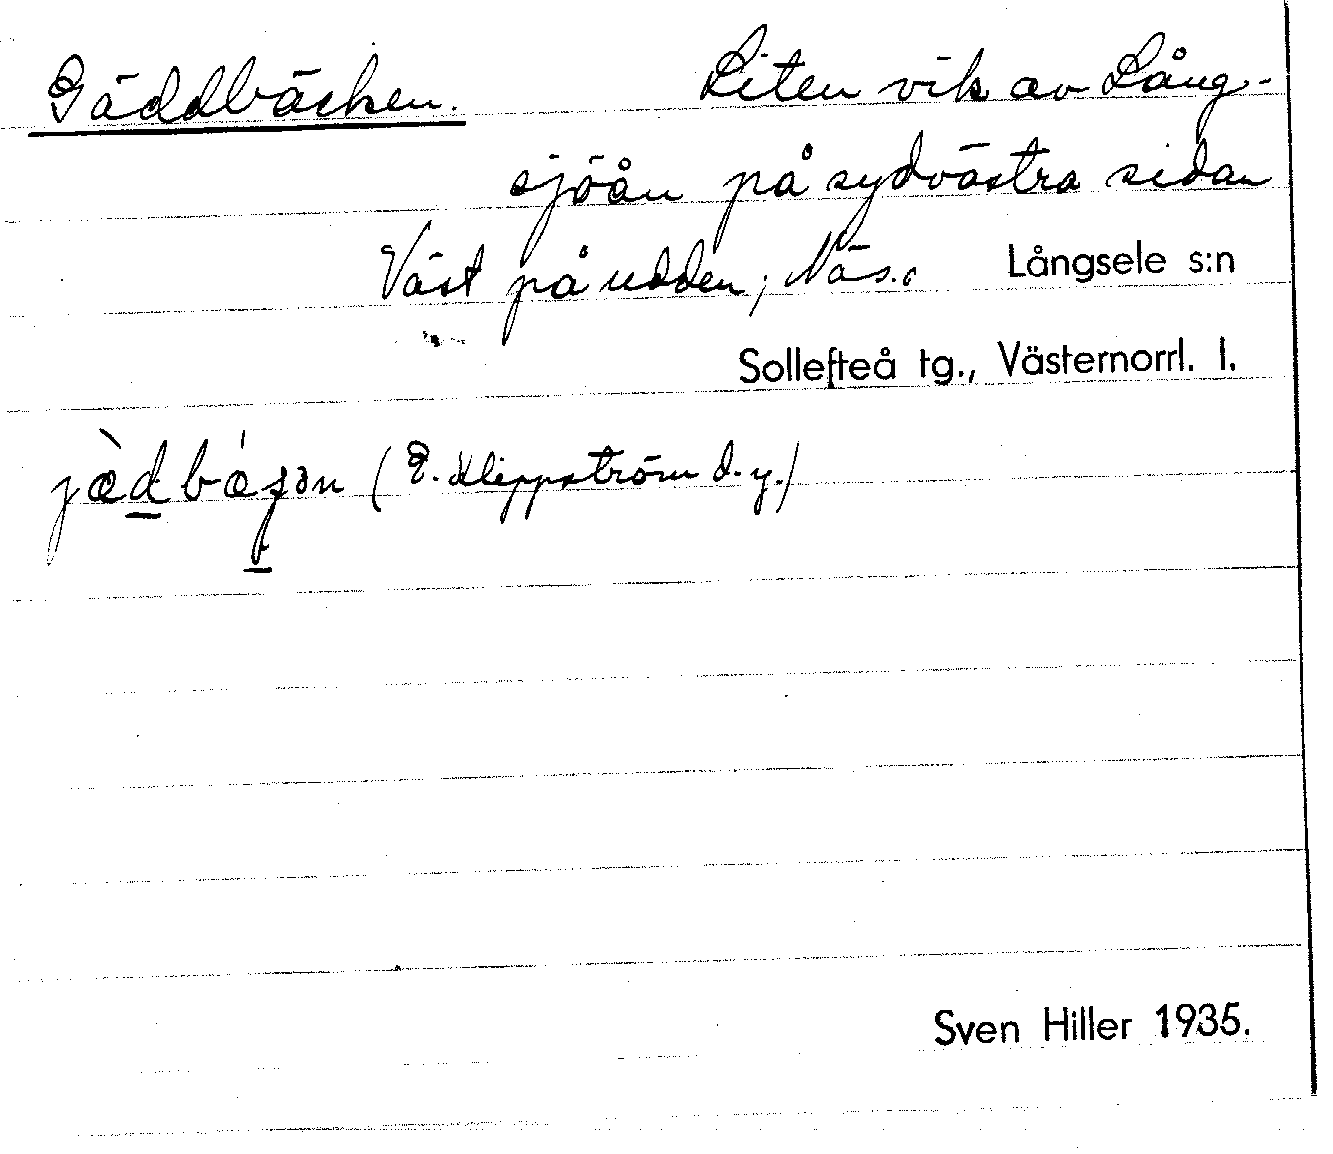 Gäddbäcken. Liten vik av Lång-
sjöån på sydvästra sidan
Väst på udden, Näs. Långsele s:n
Sollefteå tg., Västernorrl. l.
(E. Klippström d.y.)
Sven Hiller 1935.